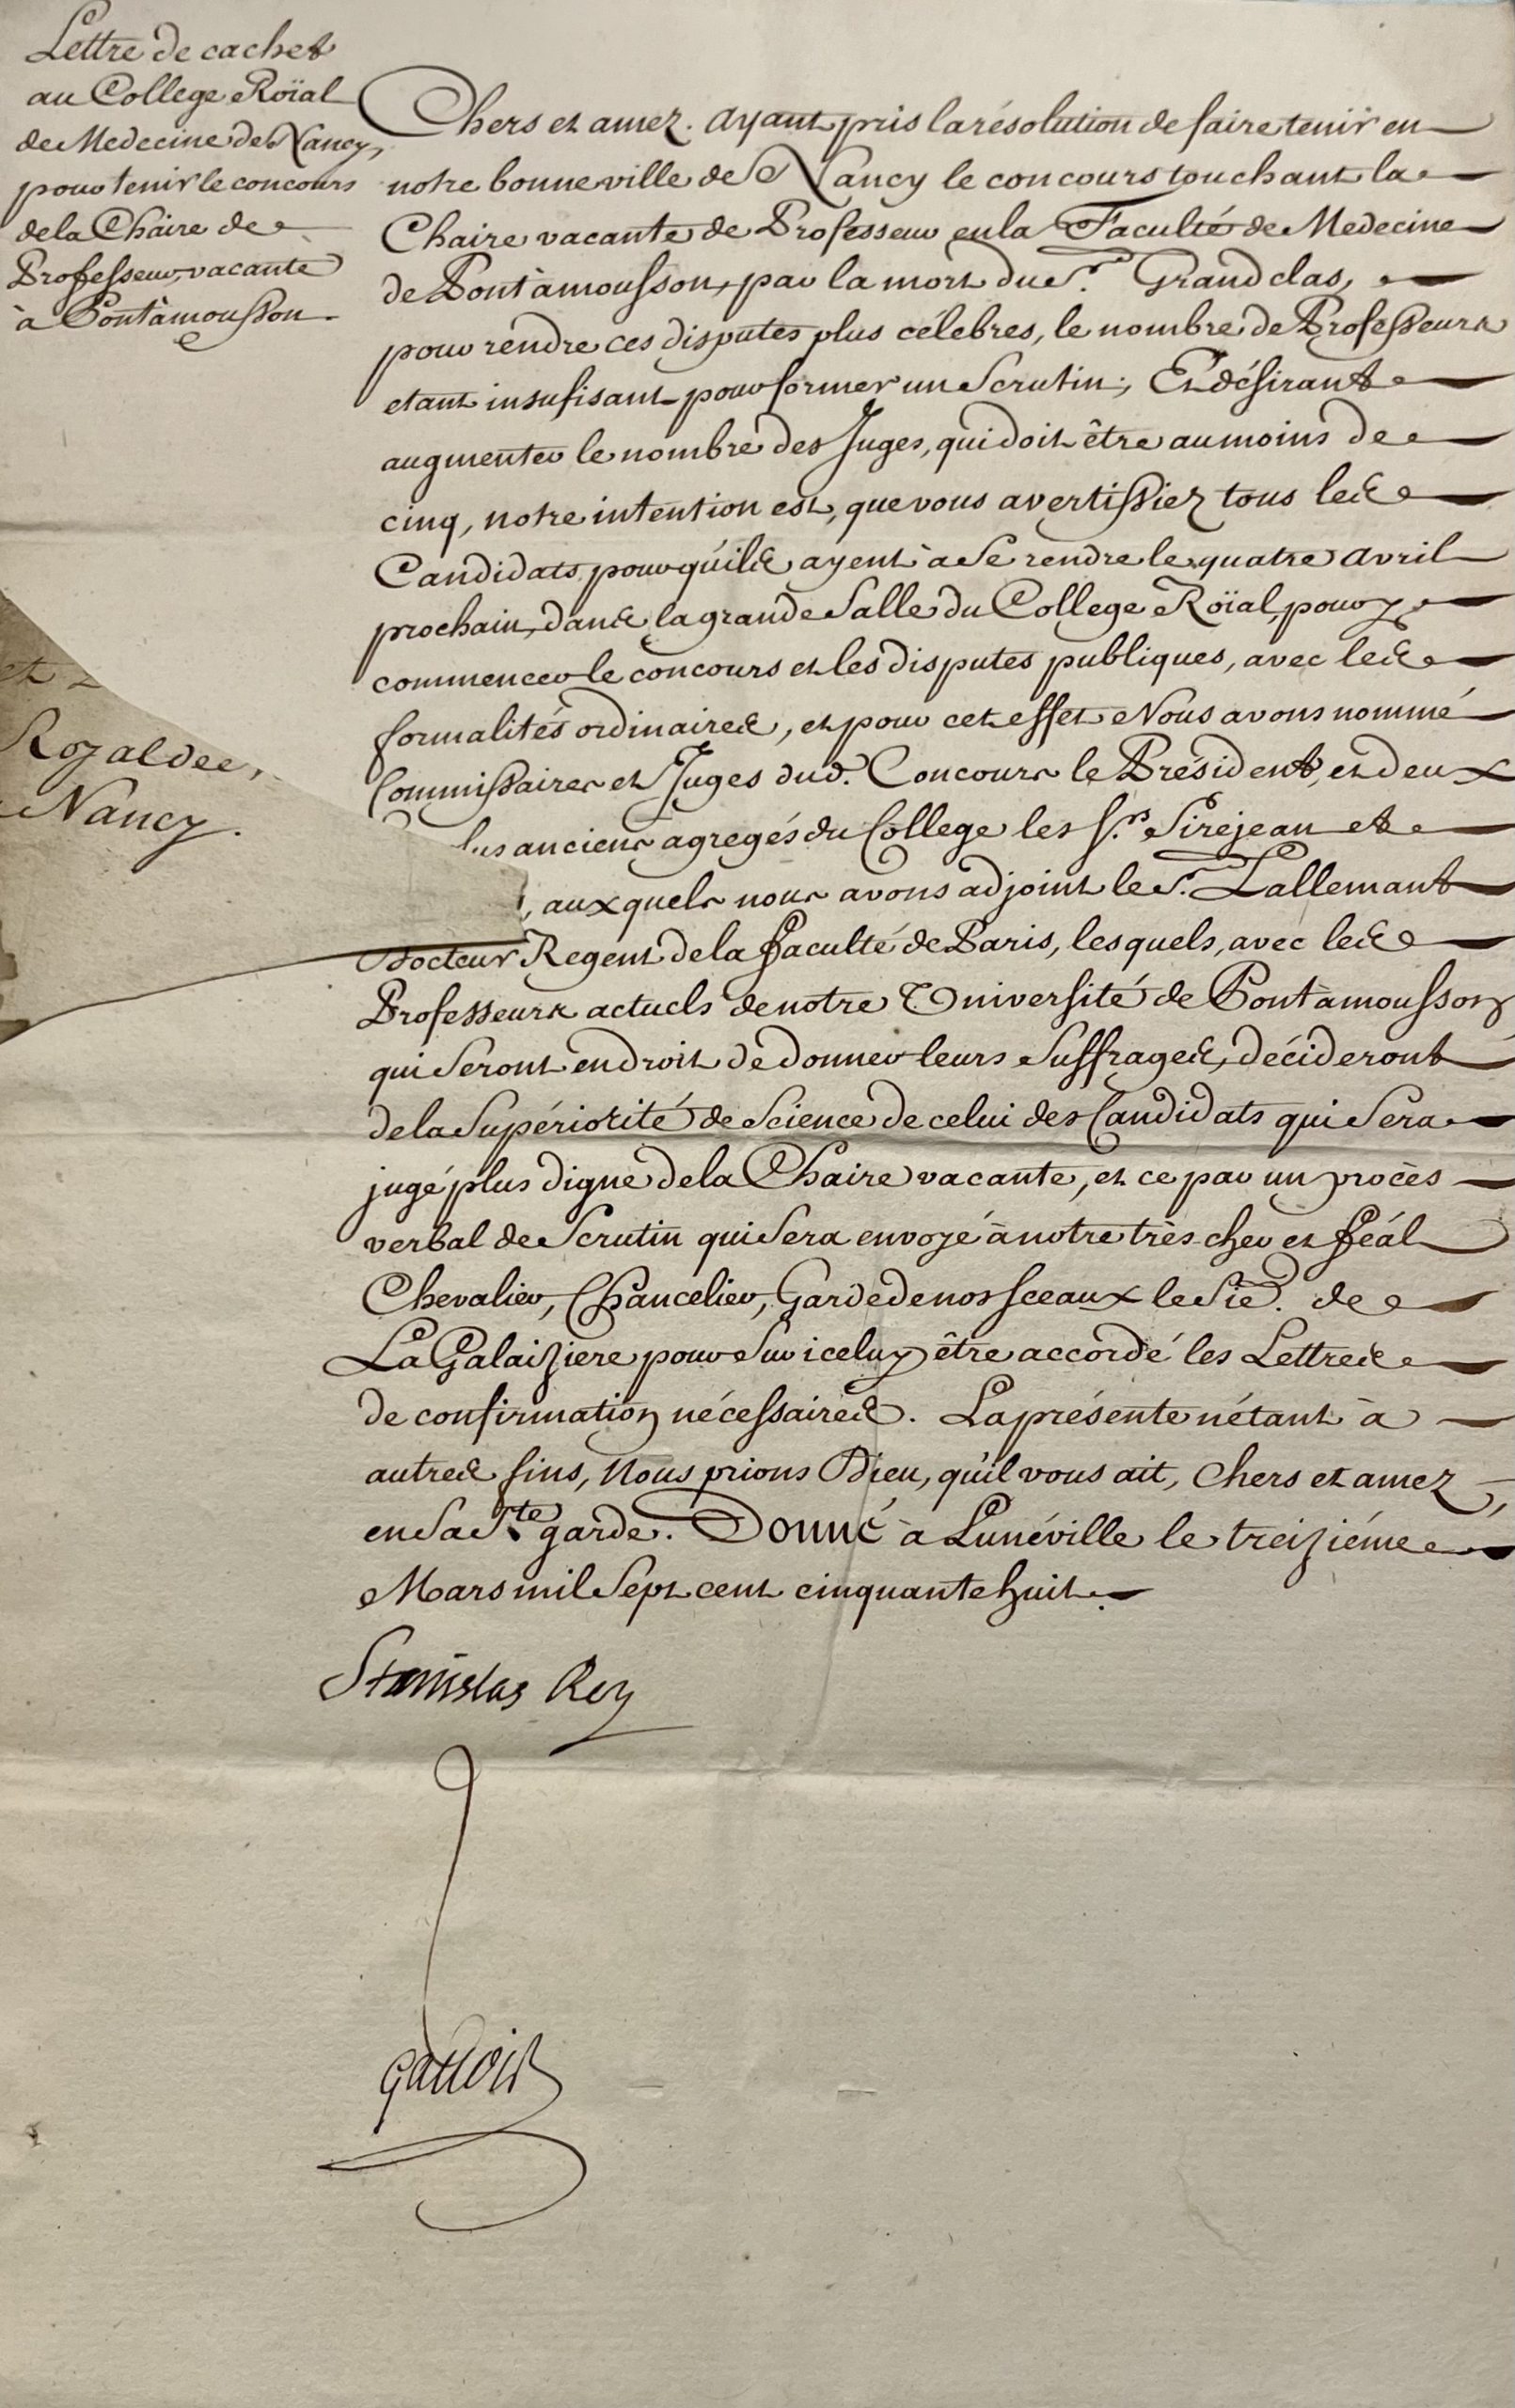 Lettre de cachet
au College Roïal
de Medecine de Nancy,
pour tenir le concours
de la Chaire de
Professeur vacante
à Pontàmousson.
Chers et amez. ayant pris la résolution de faire tenir en
notre bonne ville de Nancy le concours touchant la
Chaire vacante de Professeur en la Faculté de Medecine
de Pontàmousson, par la mort du Sr. Grandclas,
pour rendre ces disputes plus célebres, le nombre de Professeurs
etant insufisant pour former un Scrutin; Et désirant
augmenter le nombre des Juges, qui doit être au moins de
cinq, notre intention est, que vous avertissiez tous les
Candidats pour qu'ils ayent à se rendre le quatre avril
prochain, dans la grande Salle du College Roïal, pour y
commencer le concours et les disputes publiques, avec les
formalités ordinaires, et pour cet effet Nous avons nommé
Commissaires et Juges dud. Concours le Président, et deux
lus anciens agregés du College les Srs. Sirejean et
, auxquels nous avons adjoint le Sr. Lallemant
Docteur Regent de la faculté de Paris, lesquels, avec les
Professeurs actuels de notre Université de Pontàmousson
qui seront en droit de donner leurs suffrages, décideront
de la Supériorité de Science de celui des Candidats qui sera
jugé plus digne de la Chaire vacante, et ce par un procès
verbal de Scrutin qui sera envoyé à notre très cher et féal
Chevalier, Chancelier, Garde de nos sceaux le Sie. de
La Galaiziere pour sur iceluy être accordé les Lettres
de confirmation nécessaires. La présente n'étant à
autres fins, Nous prions Dieu, qu'il vous ait, Chers et amez,
en sa Ste garde. Donné à Lunéville le treiziéme
Mars mil sept cent cinquante huit.
Stanislas Roy
et
Royal de
Nancy.